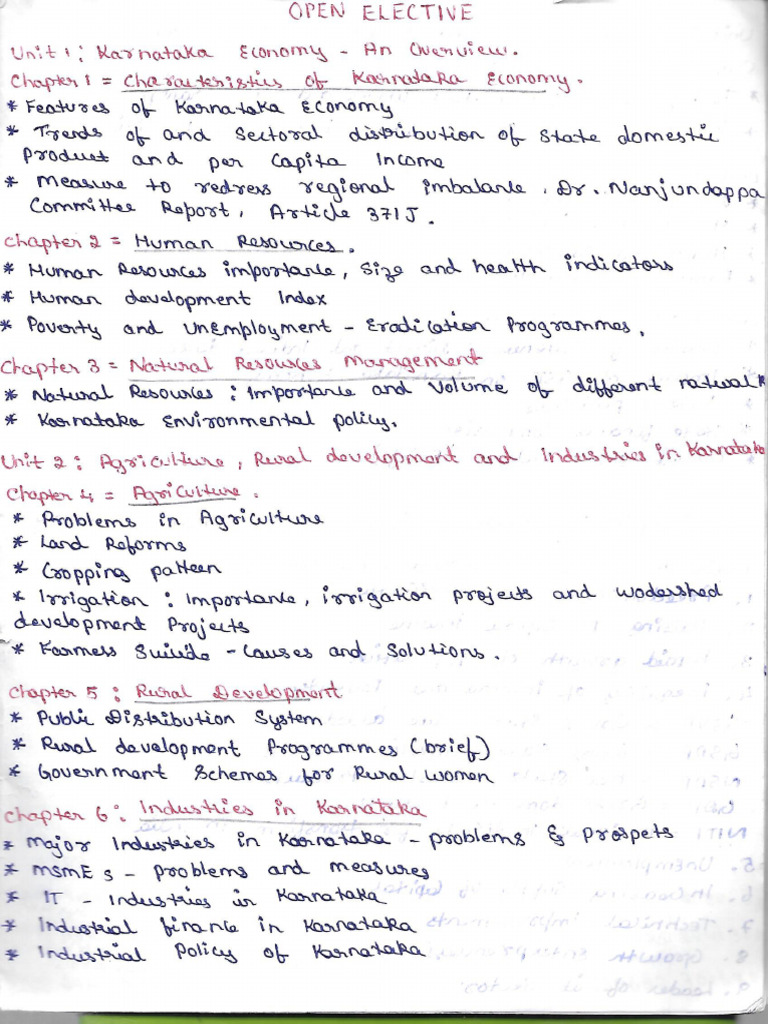 OPEN ELECTIVE
Unit 1: Karnataka Economy - An Overview.
Chapter 1 = Characteristics of Karnataka Economy.
* Features of Karnataka Economy
* Trends of and Sectoral distribution of State domestic
Product and per Capita Income
* Measure to redress regional imbalance, Dr. Nanjundappa
Committee Report, Article 371J.
Chapter 2 = Human Resources.
* Human Resources importance, Size and health indicators
* Human development Index
* Poverty and Unemployment - Eradication Programmes.
Chapter 3 = Natural Resources Management
* Natural Resources: Importance and Volume of different natural R
* Karnataka Environmental policy.
Unit 2: Agriculture, Rural development and industries in Karnataka
Chapter 4 = Agriculture.
* Problems in Agriculture
* Land Reforms
* Cropping pattern
* Irrigation: Importance, irrigation projects and watershed
development Projects
* Farmers Suicide - Causes and Solutions.
Chapter 5: Rural Development
* Public Distribution System
* Rural development Programmes (brief)
* Government Schemes for Rural women
Chapter 6: Industries in Karnataka
* Major Industries in Karnataka - problems & prospets
* MSME s - Problems and measures
* IT - Industries in Karnataka
* Industrial finance in Karnataka
* Industrial Policy of Karnataka